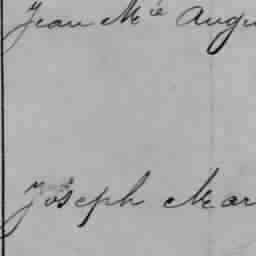 Jean Mie Augu
Joseph Mar